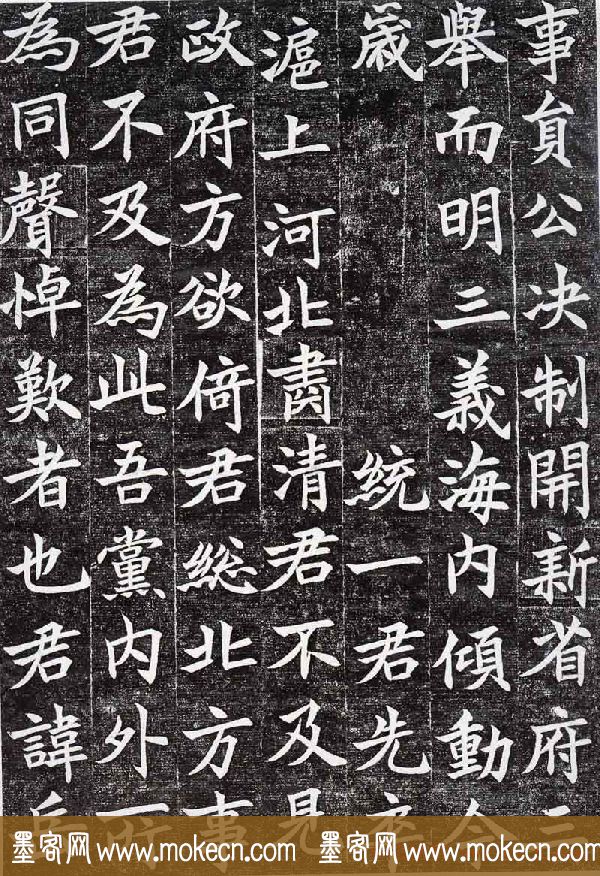 事貟公决制開新省府
舉而明三義海内傾動今
歲 統一君先卒
滬上 河北肅清君不及見
政府方欲倚君緫北方事
君不及為此吾黨内外
為同聲悼歎者也君諱
墨客网 www.mokecn.com 墨客网 www.mokecn.com